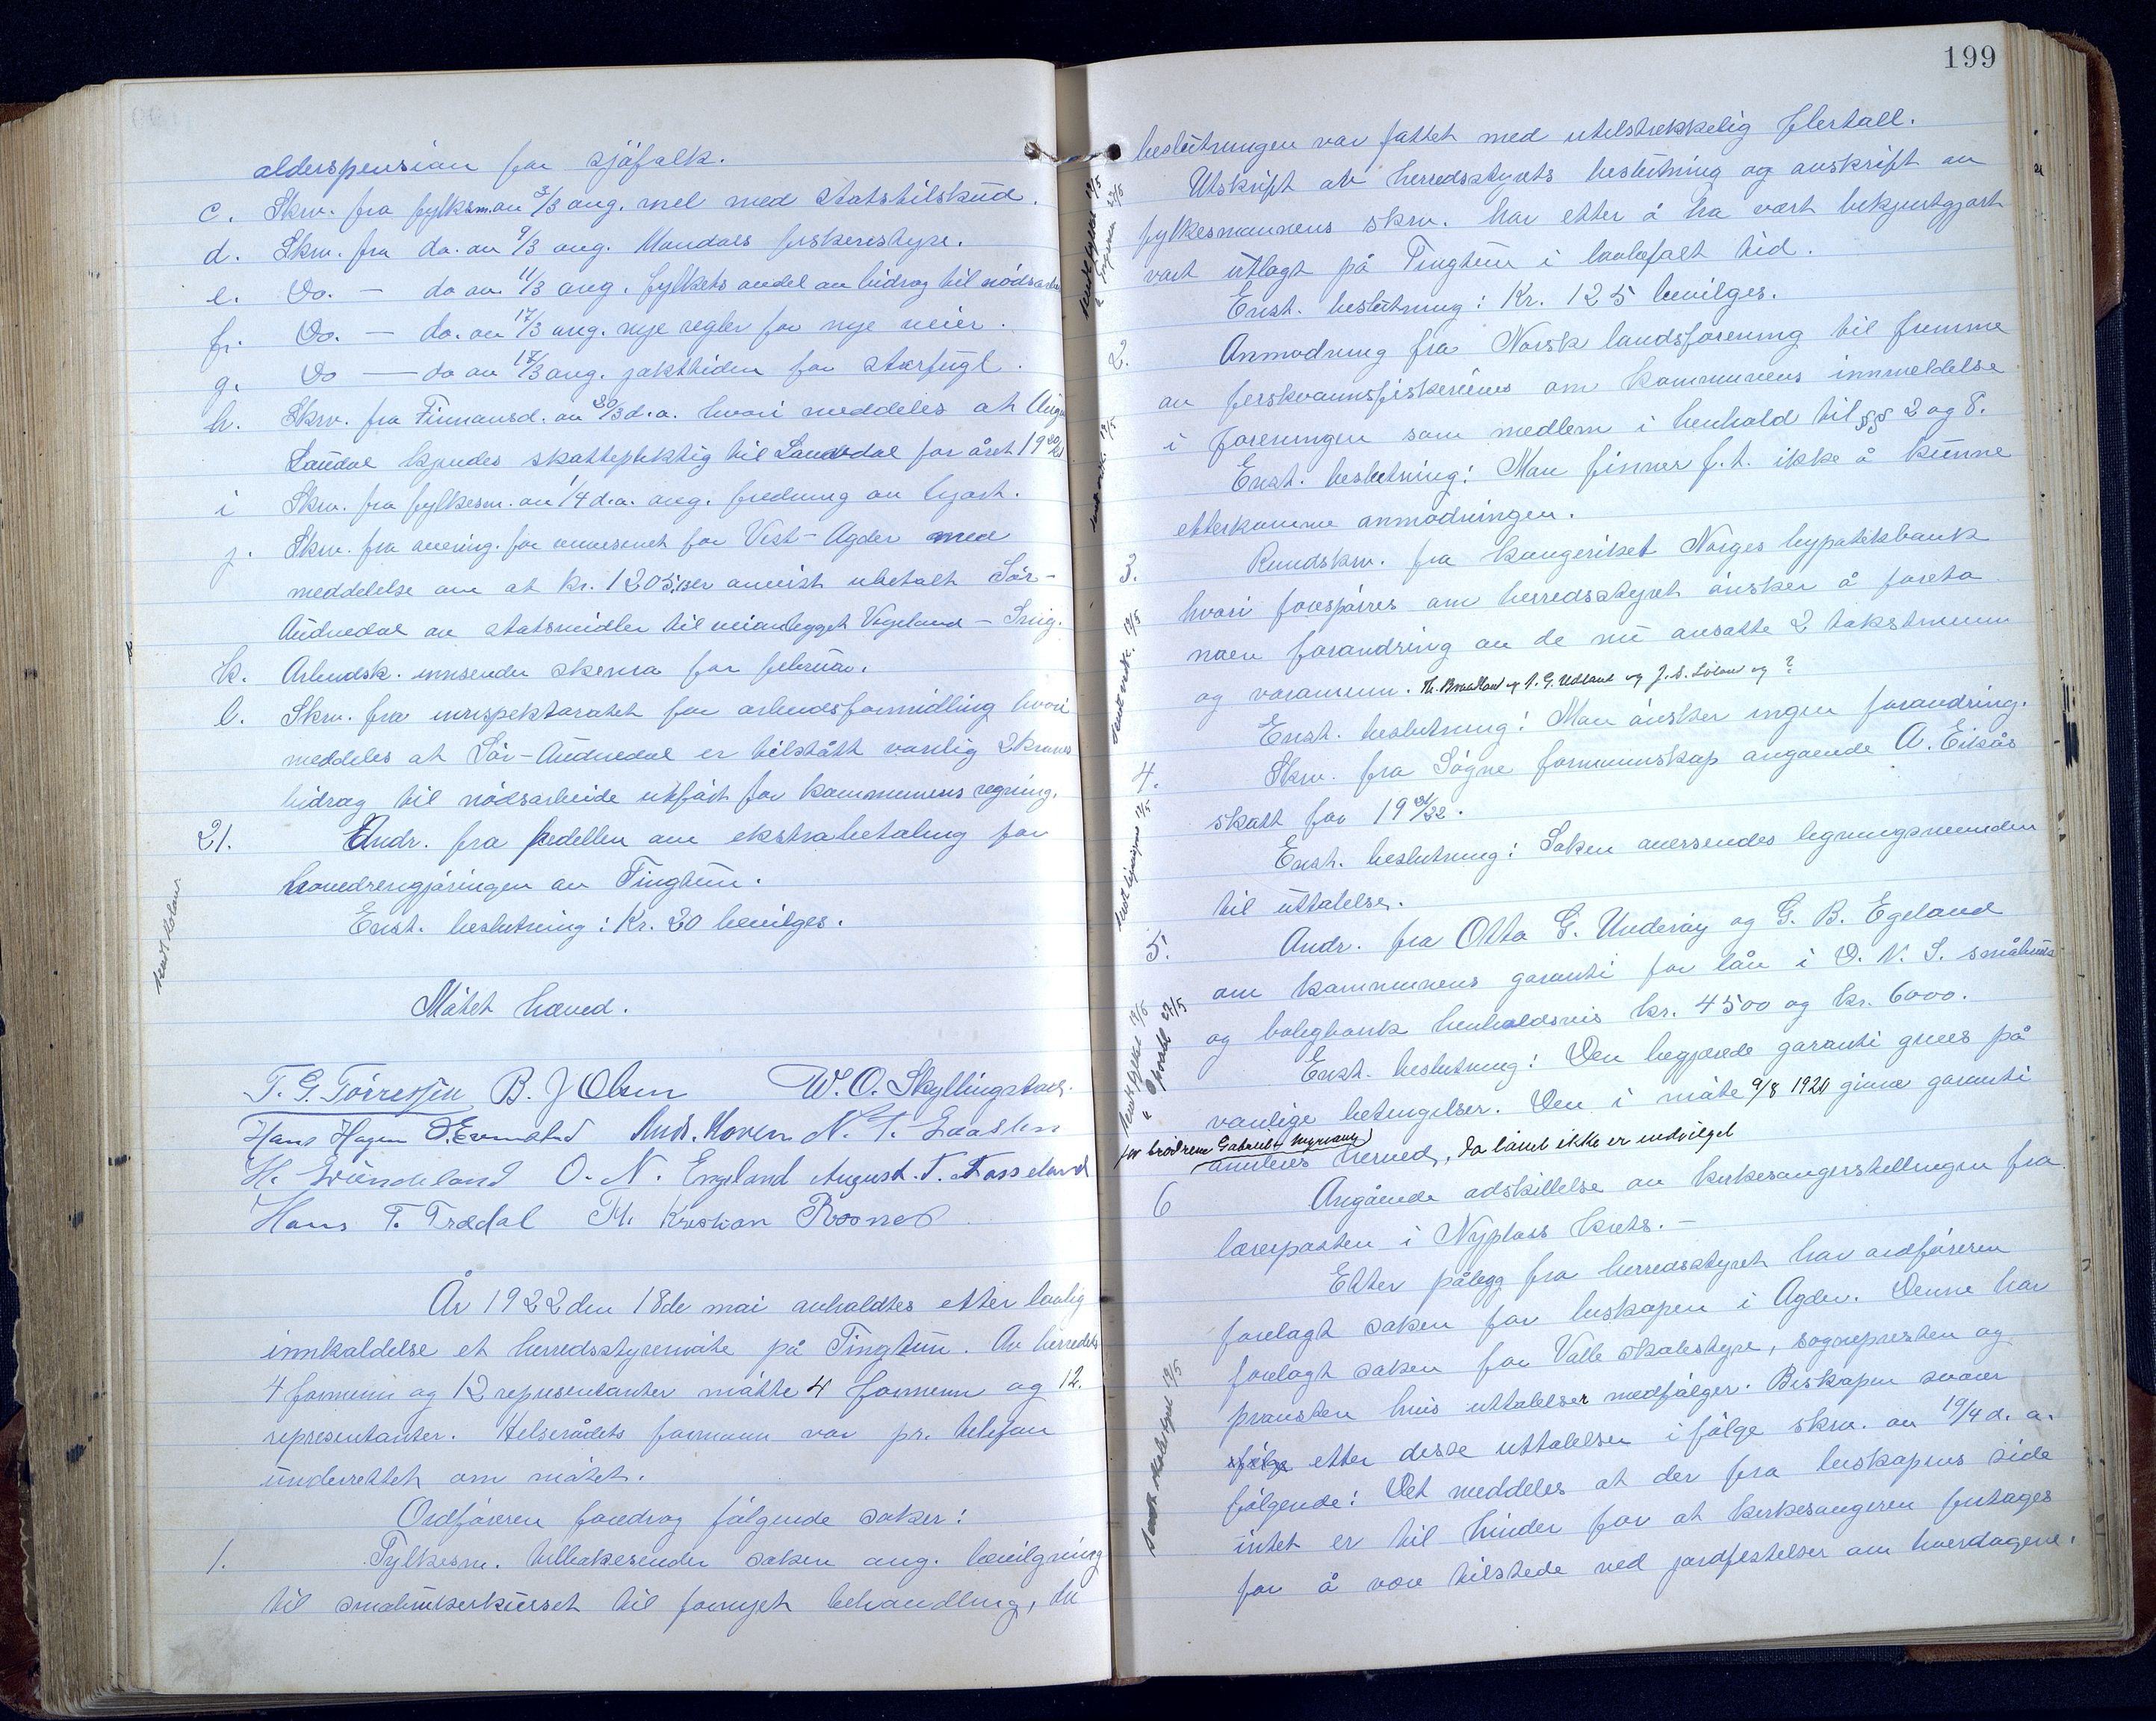 alderspension for sjöfolk.
c. Skrv. fra fylksm. av 3/3 ang. mel med statstilskud.
d. Skrv. fra do. av 9/3 ang. Mandals fiskeristyre.
e. Do. — do av 11/3 ang. fylkets andel av bidrag til nödsarb
f. Do. — do. av 17/3 ang. nye regler for nye veier.
g. Do — do av 18/3 ang. jakttiden for storfugl.
h. Skrv. fra Finansd. av 30/3 d.a. hvori meddeles at Aug
Laudal kjendes skattepliktig til Laudal for året 1920/21
i Skrv. fra fylkesm. av 1/4 d.a. ang. fredning av hjort.
j. Skrv. fra avering. for veivesenet for Vest-Agder med
meddelelse om at kr. 1205, er anvist utbetalt Sör-
Audnedal av statsmidler til veianlegget Vigeland – Snig.
k. Arbeidsk. innsender skema for februar.
l. Skrv. fra inspektoratet for arbeidsformidling hvori
meddeles at Sör-Audnedal er tilstått vanlig 2 krones
bidrag til nödsarbeide utfört for kommunens regning.
21. Andr. fra pedellen om ekstrabetaling for
hovedrengjöringen av Tingtun.
Enst. beslutning: Kr. 20 bevilges.
Mötet hæved.
T. G. Törressen B. J Olsen W. O. Skyllingstad.
Hans Hagen And. Hoven N. T.
H. Svindland O. N. Engeland August. T. Fasseland
Hans T. Trædal Th. Kristian Rosnes
År 1922 den 18de mai avholdtes efter lovlig
innkaldelse et herredsstyremöte på Tingtun. Av herredets
4 formenn og 12 representanter mötte 4 formenn og 12.
representanter. Helserådets formann var pr. telefon
underrettet om mötet.
Ordföreren foredrog fölgende saker:
1. Fylkesm. tilbakesender saken ang. bevilgning
til småbrukerkurset til fornyet behandling, da
199
beslutningen var fattet med utilstrekkelig flertall.
Utskrift av herredsstyrets beslutning og avskrift av
fylkesmannens skrv. har etter å ha vært bekjentgjort
vært utlagt på Tingtun i lovbefalt tid.
Enst. beslutning: Kr. 125 bevilges.
2. Anmodning fra Norsk landsforening til fremme
av ferskvannsfiskeriene om kommunens innmeldelse
i foreningen som medlem i henhold til §§ 2 og 8.
Enst. beslutning: Man finner f.t. ikke å kunne
etterkomme anmodningen.
3. Rundskrv. fra kongeriket Norges hypotekbank
hvori forespörres om herredsstyret önsker å foreta
noen forandring av de nu ansatte 2 takstmenn
og varamenn. Th. og J. G. Udland og J. S. og ?
Enst. beslutning: Man önsker ingen forandring.
4. Skrv. fra Sögne formannskap angaende A. Eikås
skatt for 1921/22.
Enst. beslutning: Saken oversendes ligningsnevnden
til uttalelse.
5. Andr. fra Otto G. Underöy og G. B. Egeland
om kommunens garanti for lån i D. N. S. småbruk
og boligbank henholdsvis kr. 4500 og kr. 6000.
Enst. beslutning: Den begjærede garanti gives på
vanlige betingelser. Den i möte 9/8 1920 givne garanti
for brödrene Gabriels
anulleres herved, da lånet ikke er indvilget
6 Angående adskillelse av kirkesangerstillingen fra
lærerposten i Nyplass krets. –
Etter pålegg fra herredsstyret har ordföreren
forelagt saken for biskopen i Agder. Denne har
forelagt saken for Valle skolestyre, sogneprester og
prousten hvis uttalelser medfölger. Biskopen svarer
etter disse uttalelser i fölge skrv. av 19/4 d. a.
fölgende: Det meddeles at der fra biskopens side
intet er til hinder for at kirkesangeren fritages
for å være tilstede ved jordfestelser om hverdagene.
sendt skolestyret 19/5